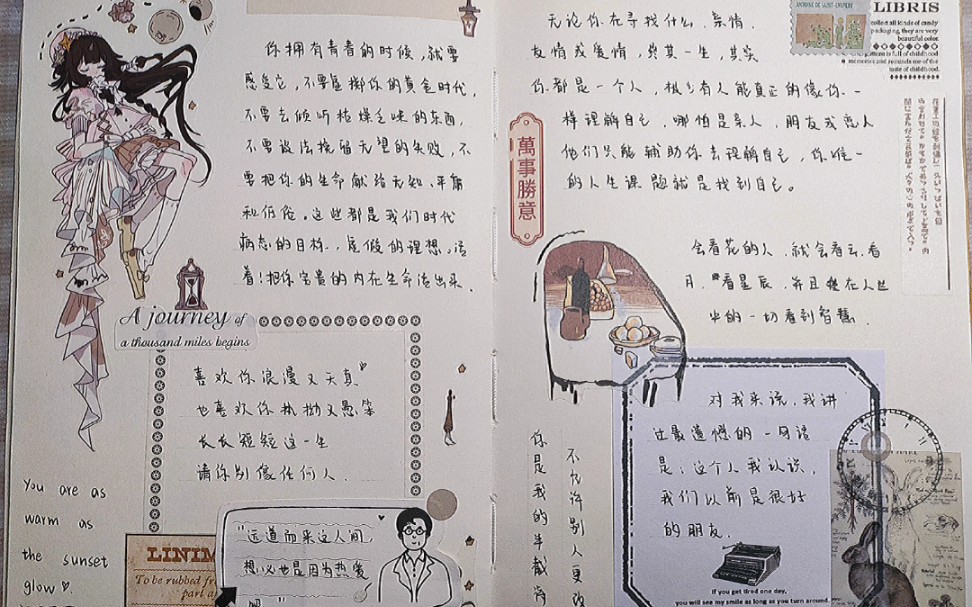 你拥有青春的时候,就要
感受它,不要虚掷你的黄金时代,
不要去倾听枯燥乏味的东西,
不要设法挽留无望的失败,不
要把你的生命献给无知、平庸
和低俗。这些都是我们时代
病态的目标,虚假的理想。活
着!把你宝贵的内在生命活出来.
A journey of
a thousand miles begins
喜欢你浪漫又天真
也喜欢你执拗又愚笨
长长短短这一生
请你别像任何人.
You are as
warm as
the sunset
glow
LINIM
To be rubbed fr
part a
"远道而来这人间,
想必也是因为热爱
无论你在寻找什么,亲情.
友情或爱情,穷其一生,其实
你都是一个人,极少有人能真正的像你一
样理解自己,哪怕是亲人,朋友或恋人
他们只能辅助你去理解自己,你唯一
的人生课题就是找到自己。
萬事勝意
ANTOINE DE SAINT-EXUPERY
LIBRIS
collect all kinds of candy
packaging, they are very
beautiful color.
is full of childhood
memories and reminds me of the
taste of childhood.
会看花的人,就会看云,看
月,看星辰,并且在人世
的一切看到智慧.
你是我的半截
不允许别人更改
对我来说,我讲
过最遗憾的一句话
是:这个人我认识,
我们以前是很好
的朋友.
If you get tired one day,
you will see my smile as long as you turn around.